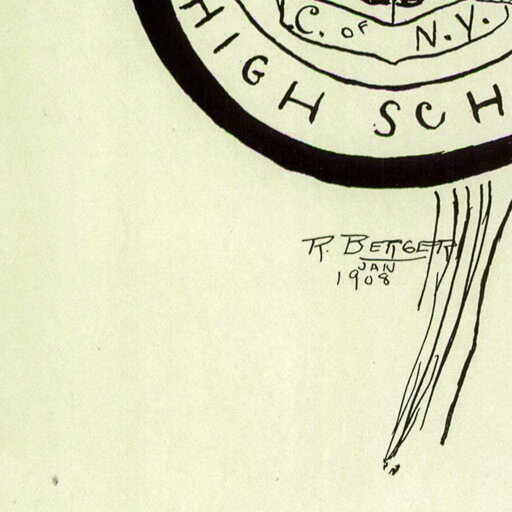 C. OF N.Y.
HIGH SCH
R. BERGER
JAN
1908